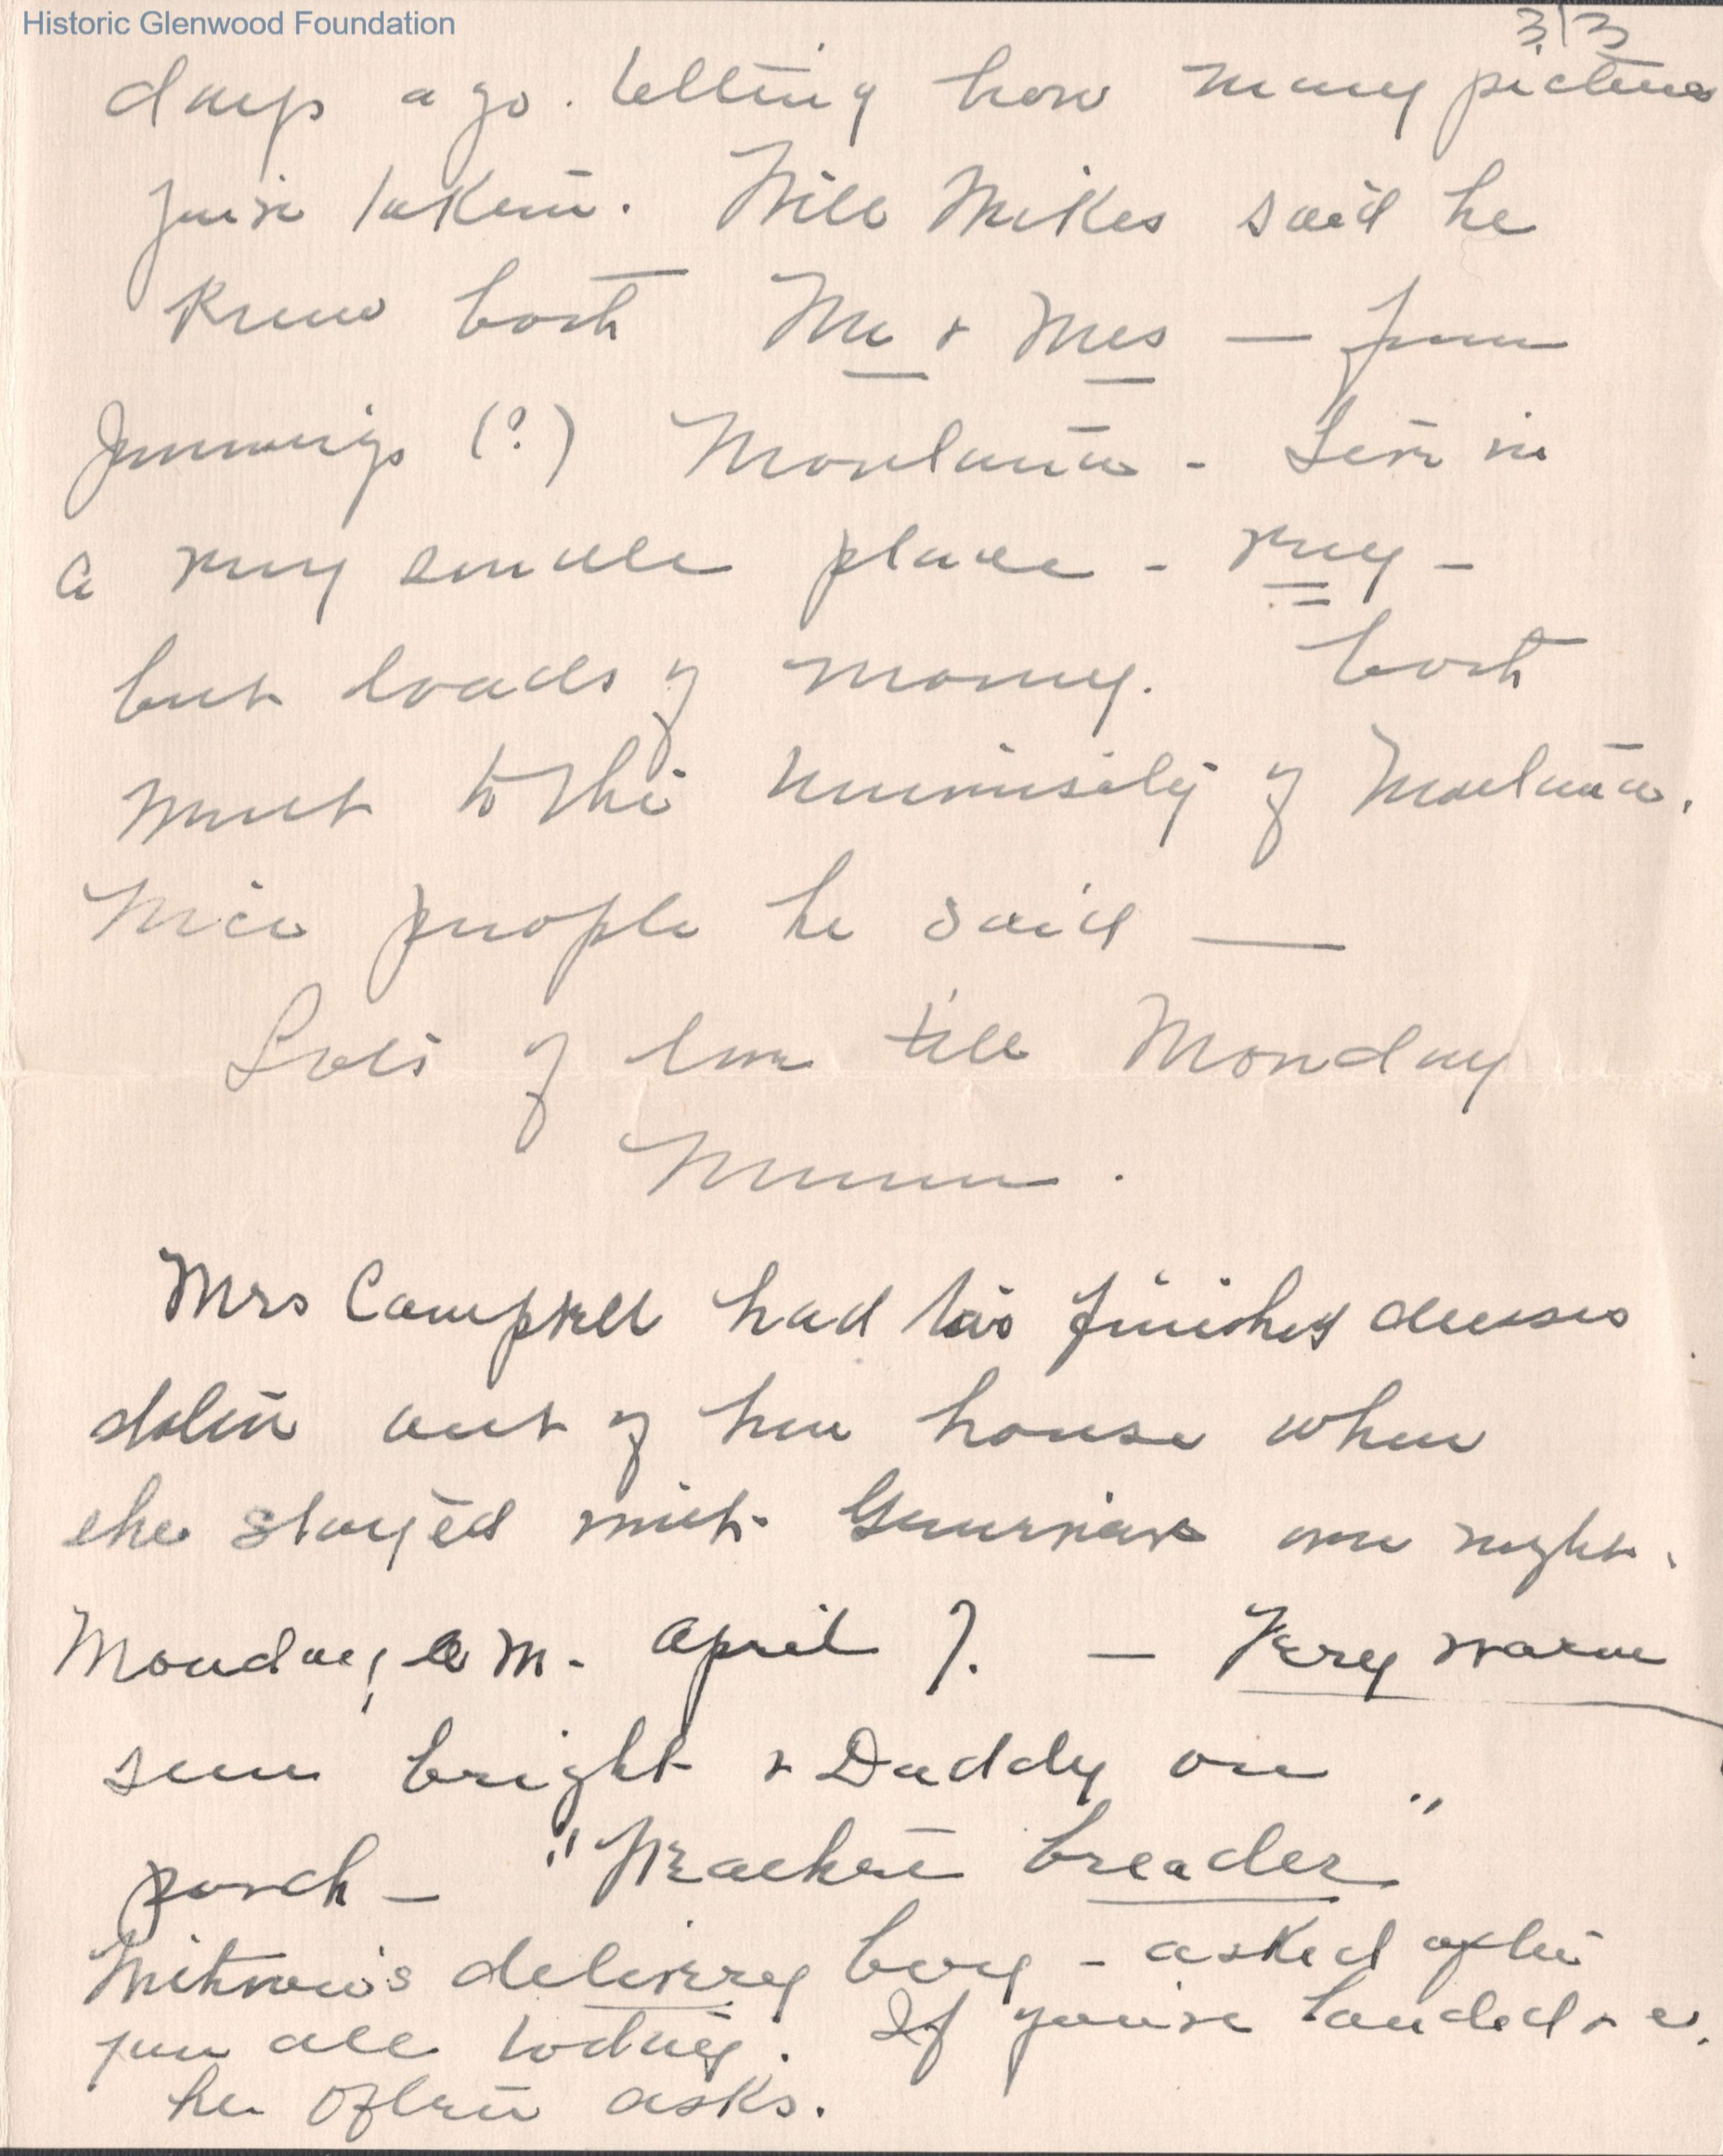 Historic Glenwood Foundation
3/3
days ago. telling how many pictures
you've taken. Will Mikes said he
knew both Mr & Mrs — from
Jennings (?) Montana - Live in
a very small place - very -
but loads of money. both
went to the University of Montana.
Nice people he said —
Lots of love till Monday
Mumm.
Mrs Campbell had his finished dresses
stolen out of her house when
she stayed with one night.
Monday, a M. April 7. — Very warm
sun bright & Daddy on
porch — " breader "
delivery boy - asked after
you all today. If you've landed & e.
he often asks.